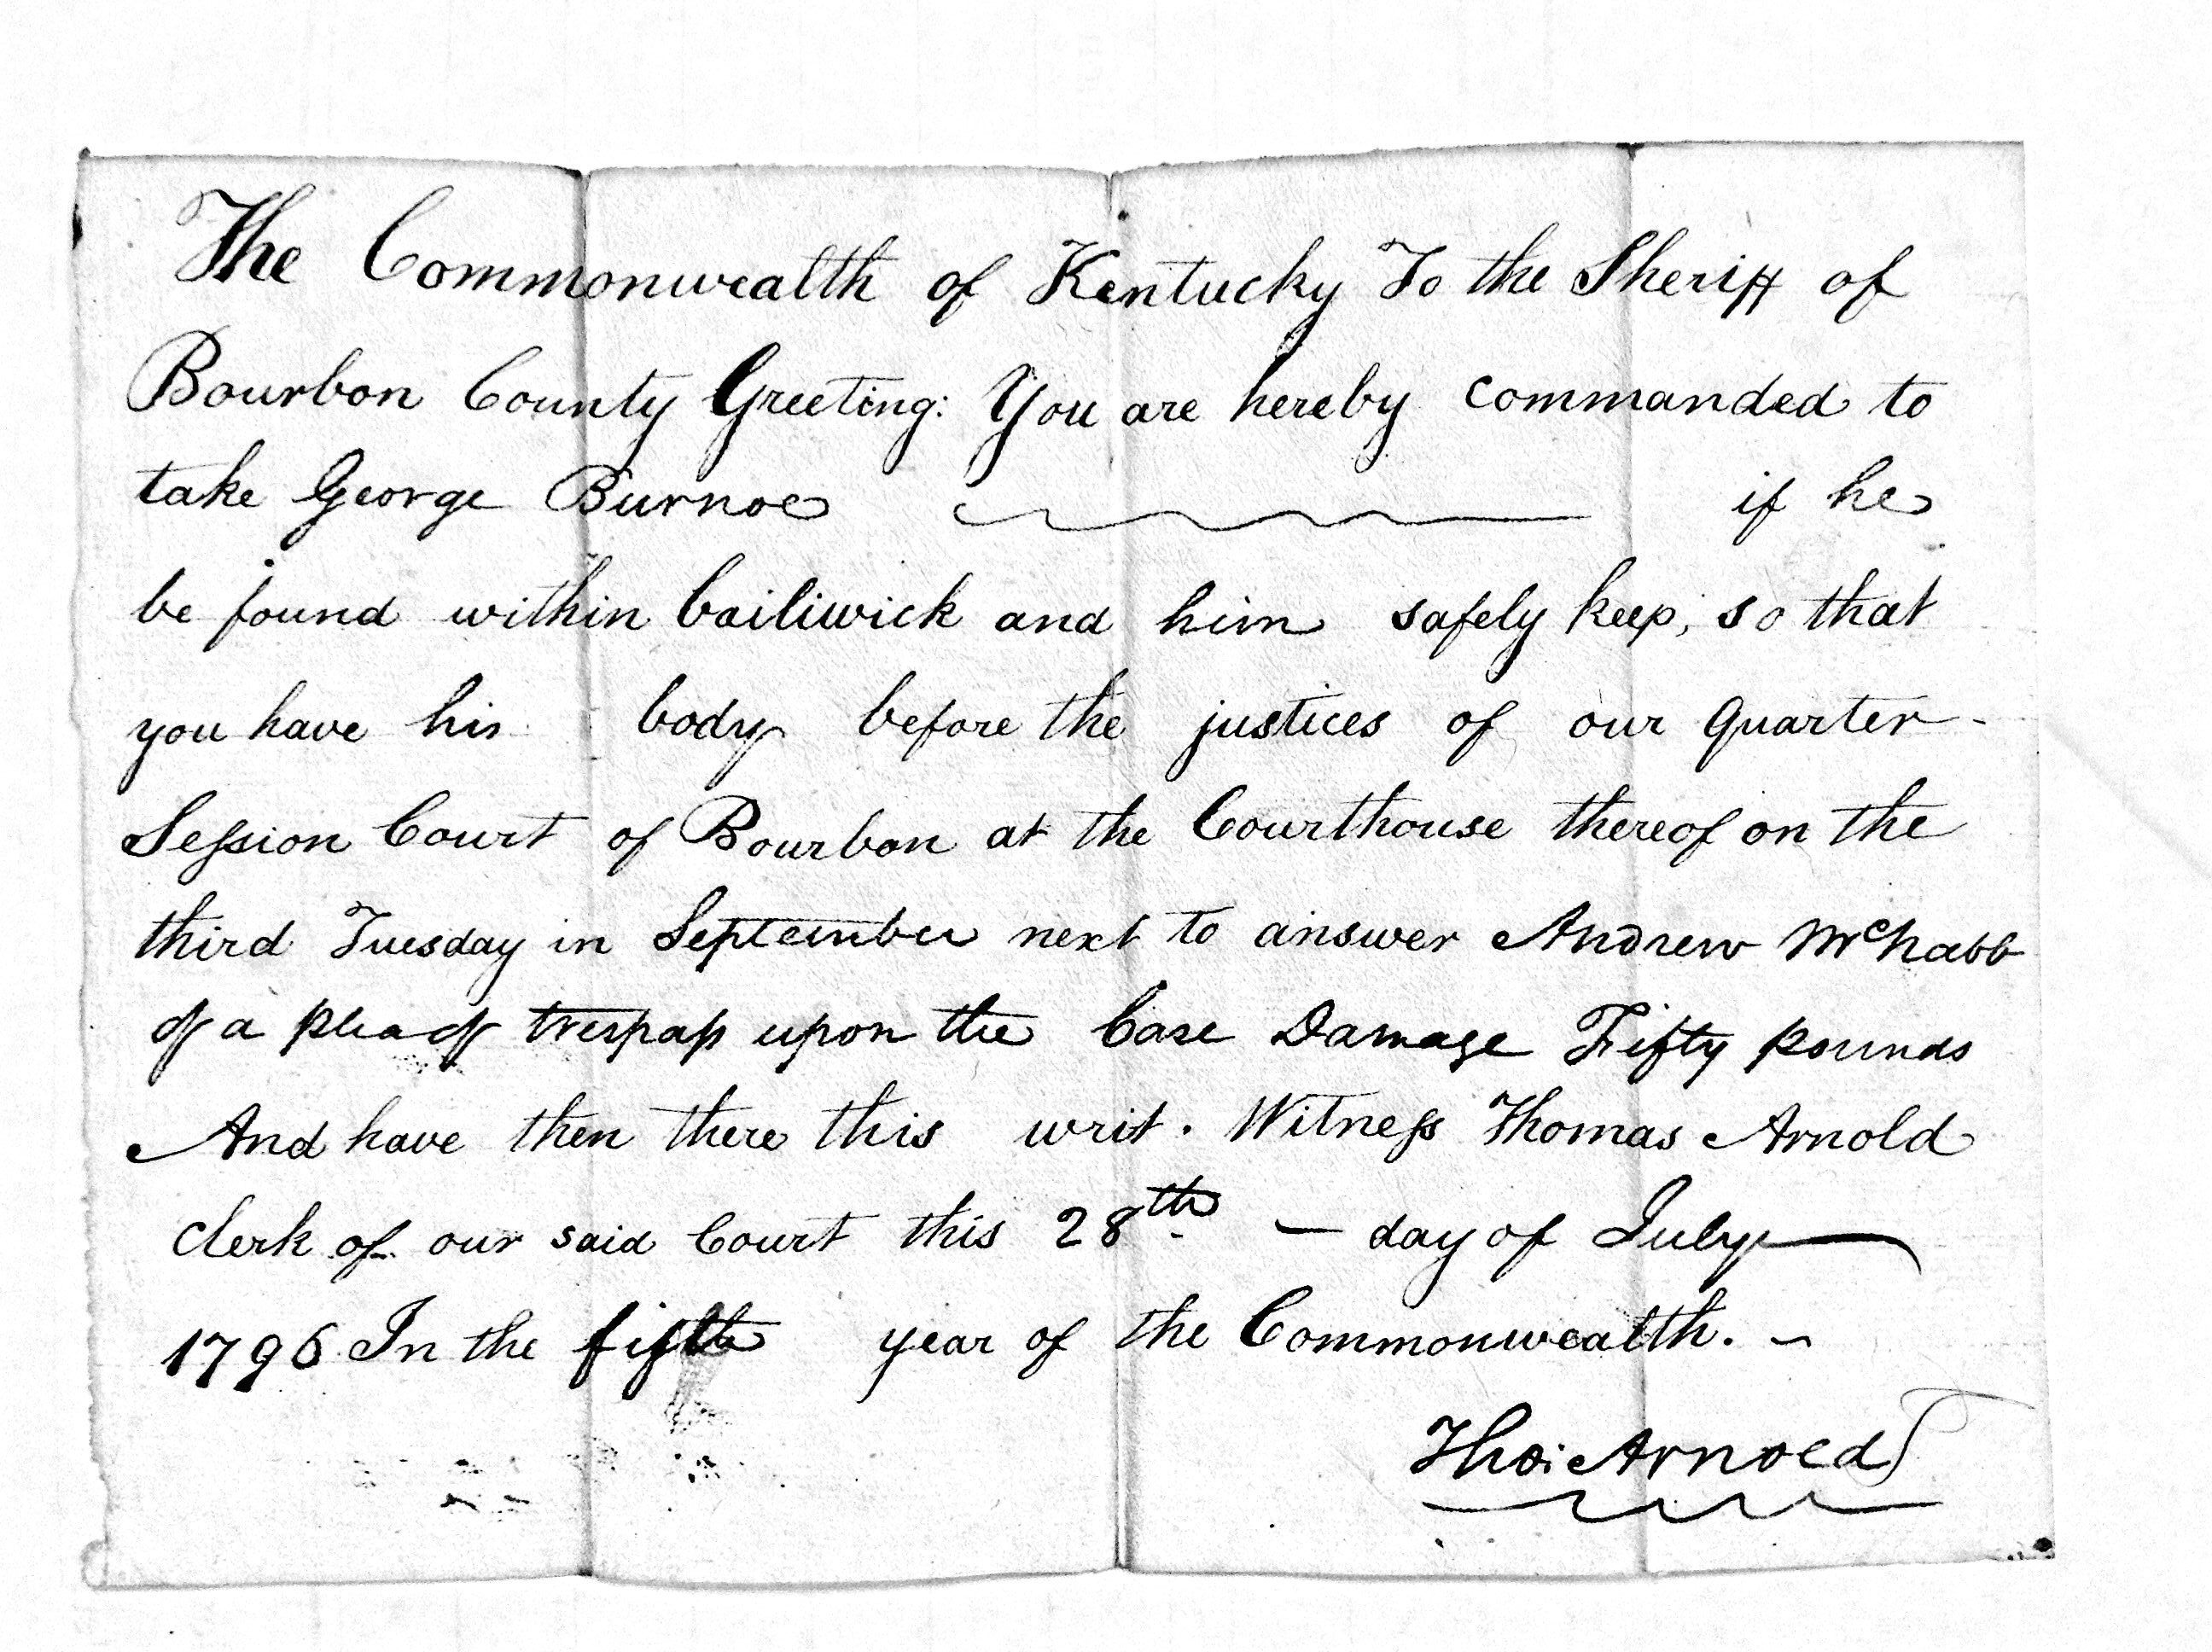 The Commonwealth of Kentucky To the Sheriff of
Bourbon County Greeting: You are hereby commanded to
take George Burnoe if he
be found within bailiwick and him safely keep, so that
you have his body before the justices of our Quarter-
Session Court of Bourbon at the Courthouse thereof on the
third Tuesday in September next to answer Andrew McNabb
of a plea of trespass upon the Case Damage Fifty pounds
And have then there this writ. Witness Thomas Arnold
Clerk of our said Court this 28th — day of July
1796 In the fifth year of the Commonwealth. –
Tho: Arnold